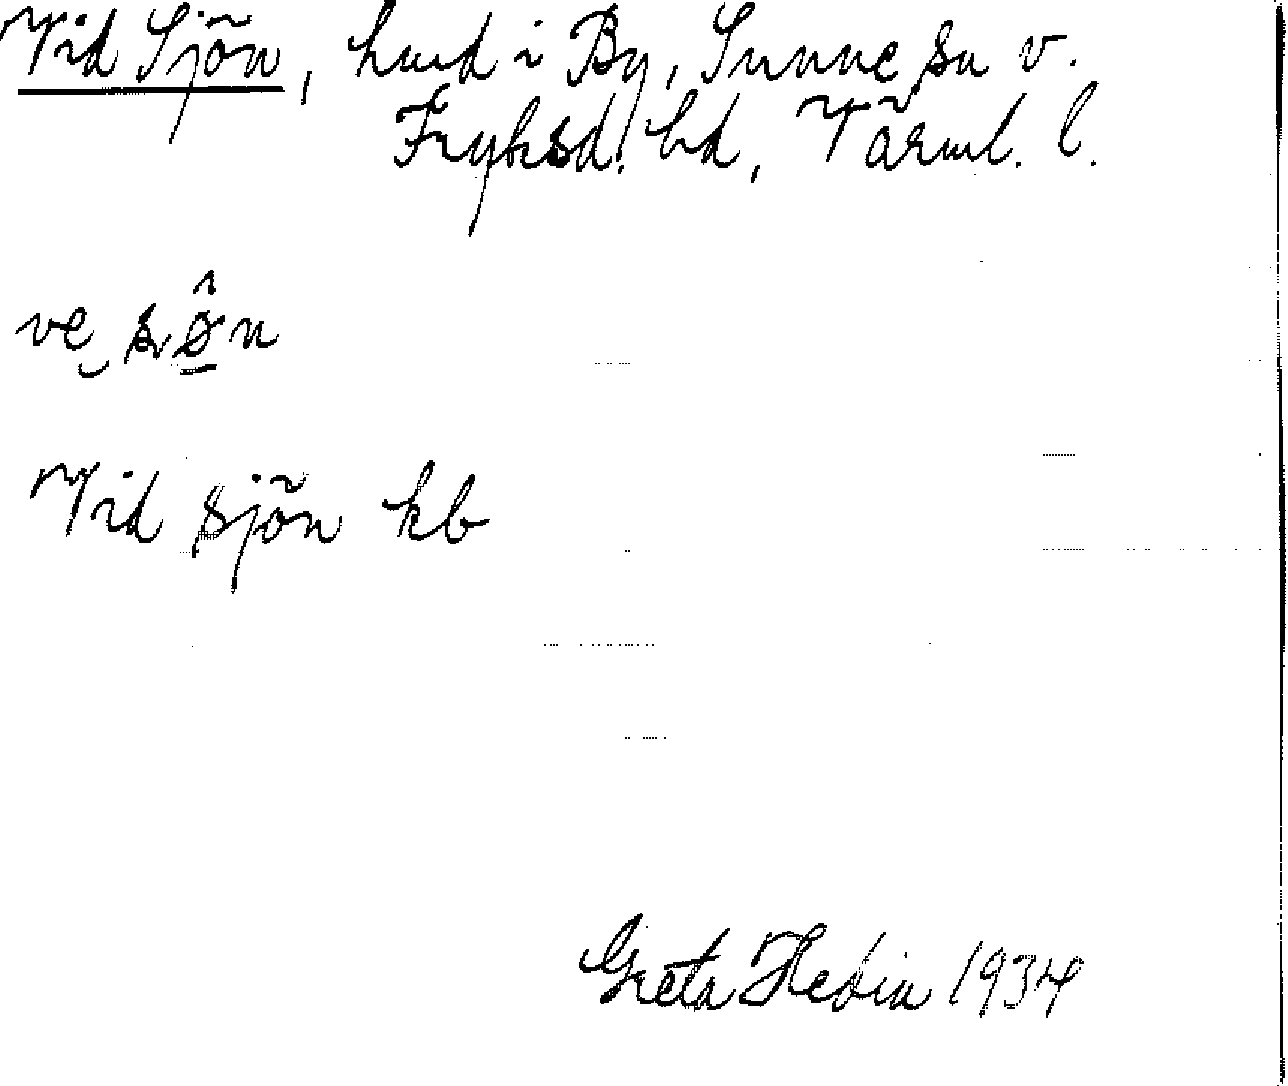 Vid Sjön, hmd i By, Sunne sn v.
Fryksd. hd, Värml. l.
Vid sjön kb
Greta Hedin 1934